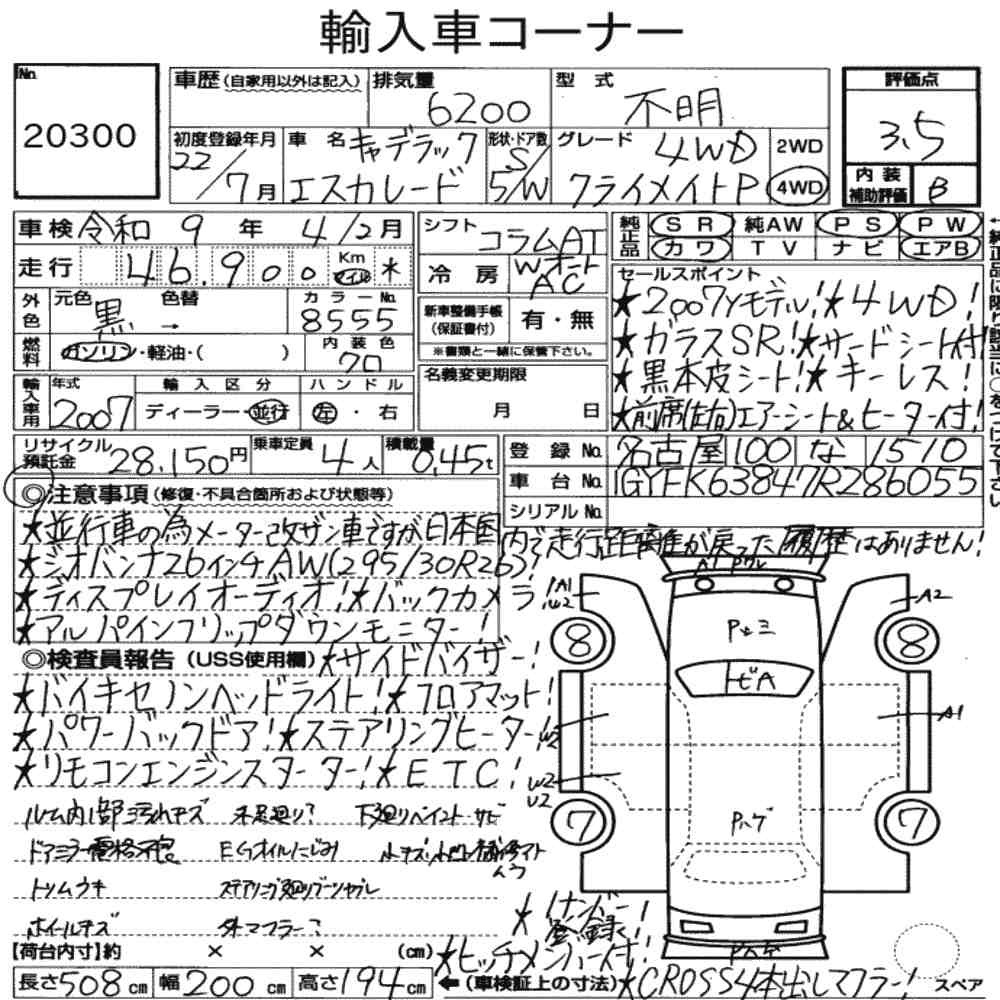 輸入車コーナー
No. 20300
車歴 (自家用以外は記入) 排気量 6200 型式 不明
評価点 3.5
初度登録年月 22/7月 車名 キャデラック エスカレード 形状・ドア数 S/5/W グレード 4WD クライメイトP 2WD 4WD
内装補助評価 B
車検 令和 9年 4/2月
シフト コラムAT
純正品 SR 純AW PS PW
カワ TV ナビ エアB
走行 46,900 Km マイル ※
冷房 Wオート AC
外色 元色 黒 → 色替 カラーNo. 8555
新車整備手帳 (保証書付) 有・無
※書類と一緒に保管下さい。
燃料 ガソリン・軽油・( ) 内装色 クロ
輸入車用 年式 2007 輸入区分 ディーラー・並行 ハンドル 左・右
名義変更期限 月 日
セールスポイント
★2007Yモデル!★4WD!
★ガラスSR!★サードシート付!
★黒本皮シート!★キーレス!
★前席(左右)エアーシート&ヒーター付!
←純正品に限り該当に○をつけて下さい
リサイクル預託金 28,150円 乗車定員 4人 積載量 0.45t
登録No. 名古屋 100 な 1510
車台No. 1GYFK63847R286055
シリアルNo.
◎注意事項 (修復・不具合箇所および状態等)
★並行車の為メーター改ザン車ですが日本国内で走行距離が戻った履歴はありません!
★ジオバンナ26インチAW(295/30R26)!
★ディスプレイオーディオ!★バックカメラ
★アルパインフリップダウンモニター!
◎検査員報告 (USS使用欄) ★サイドバイザー!
★バイキセノンヘッドライト!★フロアマット!
★パワーバックドア!★ステアリングヒーター
★リモコンエンジンスターター!★ETC!
ルーム内部汚れキズ 下廻りペイント サビ
EGオイルにじみ
トリムウキ
ホイルキズ 外マフラー?
A1
W2
A2
8
8
トビA
A1
W2
U2
7
7
★ナンバー登録!
★ヒッチメンバー付!
【荷台内寸】約 × × (cm)
長さ508cm 幅200cm 高さ194cm ←(車検証上の寸法) ★CROSS4本出しマフラー! スペア